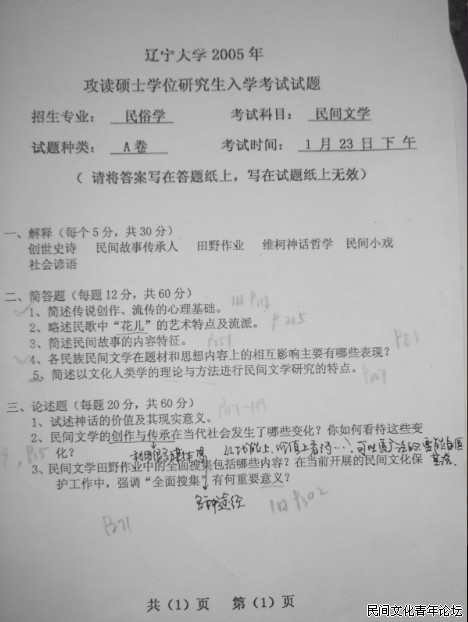 辽宁大学 2005 年
攻读硕士学位研究生入学考试试题
招生专业: 民俗学 考试科目: 民间文学
试题种类: A卷 考试时间: 1 月 23 日 下 午
( 请将答案写在答题纸上，写在试题纸上无效)
一、解释（每个5分，共30分）
创世史诗 民间故事传承人 田野作业 维柯神话哲学 民间小戏
社会谚语
二、简答题（每题12分，共60分）
1、简述传说创作、流传的心理基础。
2、略述民歌中“花儿”的艺术特点及流派。
3、简述民间故事的内容特征。
4、各民族民间文学在题材和思想内容上的相互影响主要有哪些表现？
5、简述以文化人类学的理论与方法进行民间文学研究的特点。
三、论述题（每题20分，共60分）
1、试述神话的价值及其现实意义。
2、民间文学的创作与传承在当代社会发生了哪些变化？你如何看待这些变
化？
3、民间文学田野作业中的全面搜集包括哪些内容？在当前开展的民间文化保
护工作中，强调“全面搜集”有何重要意义？
P302
共（1）页 第（1）页
民间文化青年论坛